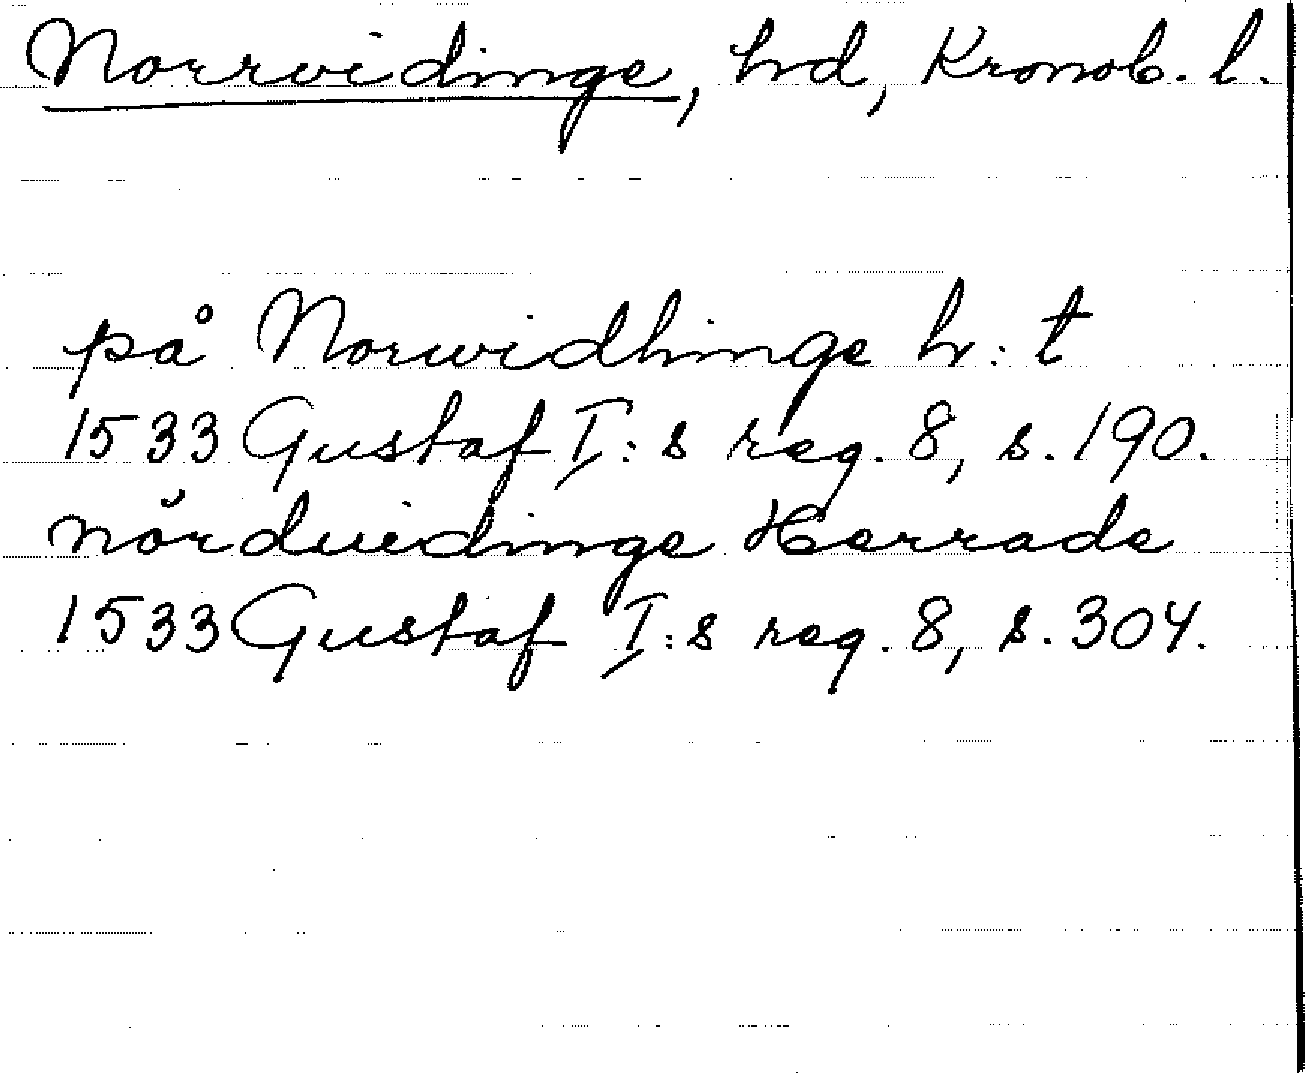 Norrvidinge, hd, Kronob. l.
på Norwidhinge hr: t
1533 Gustaf I:s reg. 8, s. 190.
nŏrduedinge Herrade
1533 Gustaf I:s reg. 8, s. 304.